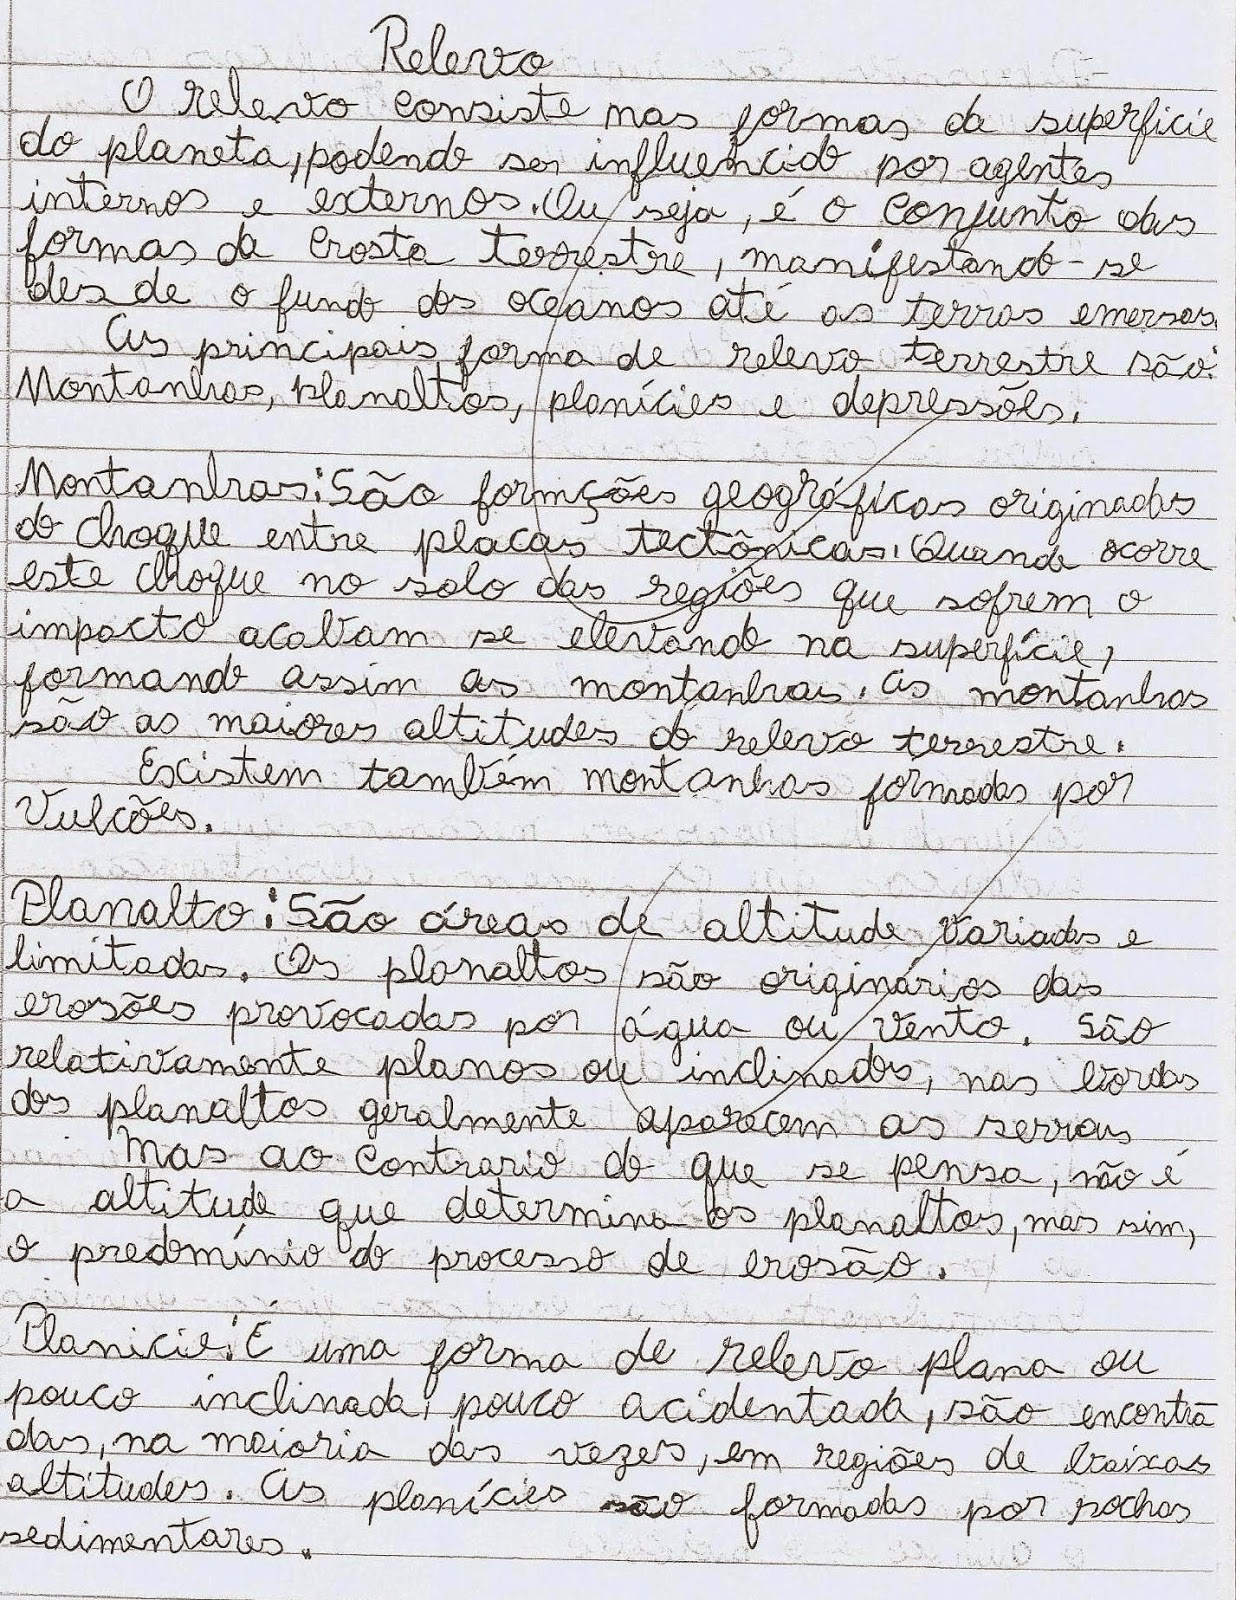 Relevo
O relevo consiste nas formas da superficie
do planeta, podendo ser influencido por agentes
internos e externos. Ou seja, é o conjunto das
formas da crosta terrestre, manifestando-se
desde o fundo dos oceanos até as terras emersas.
As principais forma de relevo terrestre são:
Montanhas, planaltos, planícies e depressões.
Montanhas: São formções geográficas originadas
do choque entre placas tectônicas. Quando ocorre
este choque no solo das regiões que sofrem o
impacto acabam se elevando na superfície,
formando assim as montanhas. As montanhas
são as maiores altitudes do relevo terrestre.
Existem também montanhas formadas por
Vulcões.
Planalto: São áreas de altitude variadas e
limitadas. Os planaltos são originários das
erosões provocadas por água ou vento. São
relativamente planos ou inclinados, nas bordas
dos planaltos geralmente aparecem as serras
Mas ao contrario do que se pensa, não é
a altitude que determina os planaltos, mas sim,
o predomínio do processo de erosão.
Planicie: É uma forma de relevo plana ou
pouco inclinada, pouco acidentada, são encontra
das, na maioria das vezes, em regiões de baixas
altitudes. As planícies são formadas por rochas
sedimentares.